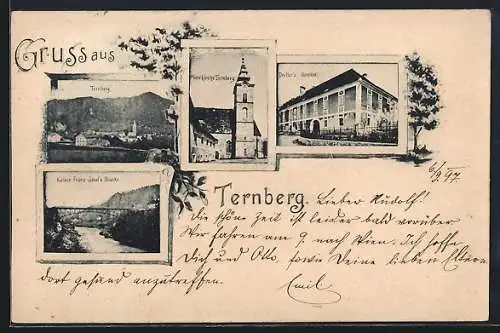 Gruss aus
Ternberg
Pfarrkirche Ternberg
Kaiser Franz Josef's Brücke
Ternberg.
6/9. 97
Lieber Rudolf!
Die schöne Zeit ist leider bald vorüber
Wir fahren am 9. nach Wien. Ich hoffe
Dich und Otto, sowie Deine lieben Eltern
dort gesund anzutreffen.
Emil